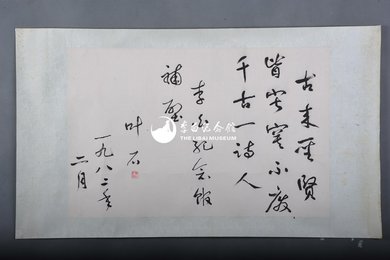 古来圣贤
皆寂寞不废
千古一诗人
李白纪念馆
补壁
叶石
一九八二年
二月
李白纪念馆
THE LIBAI MUSEUM